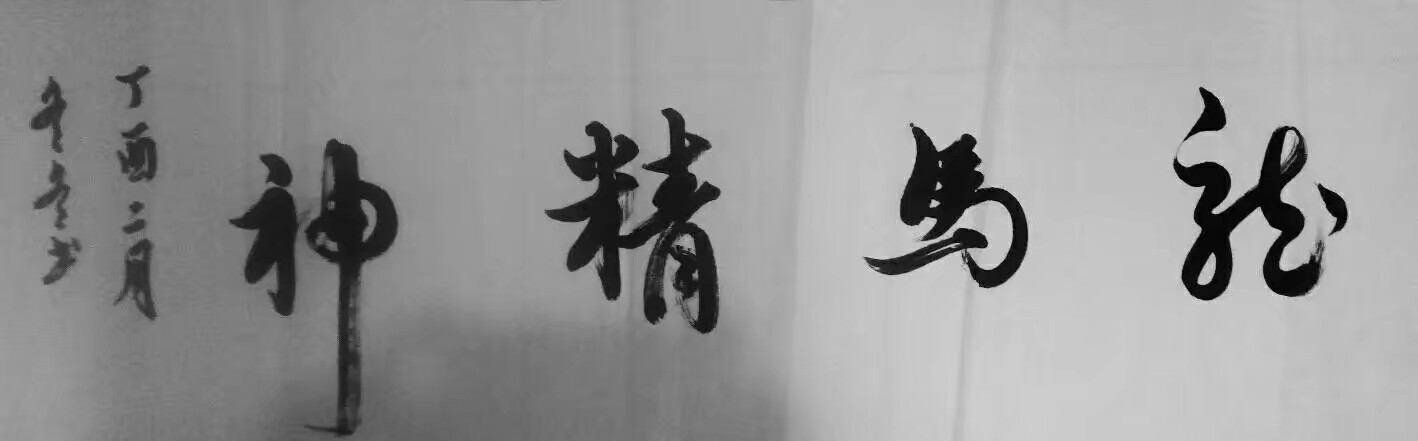 龍馬精神
丁酉二月
书